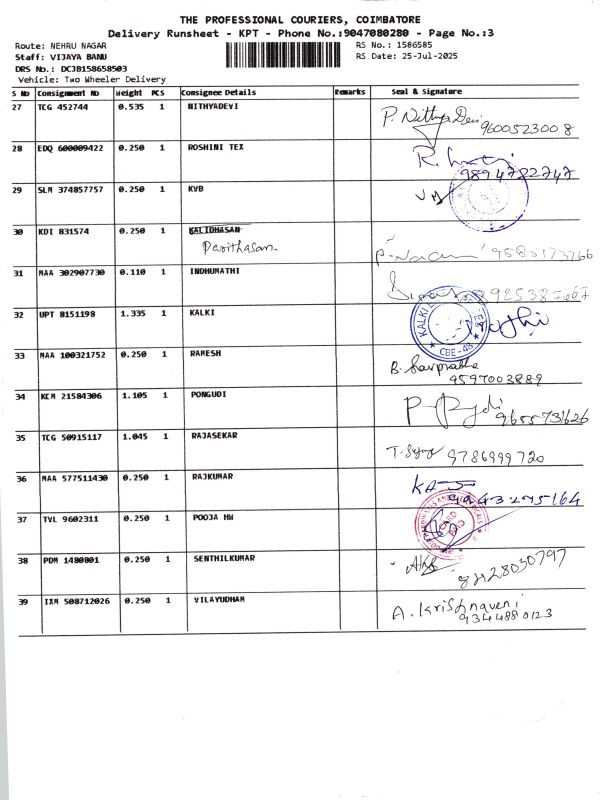 THE PROFESSIONAL COURIERS, COIMBATORE
Delivery Runsheet - KPT - Phone No.:9047080280 - Page No.:3
Route: NEHRU NAGAR RS No.: 1586585
Staff: VIJAYA BANU RS Date: 25-Jul-2025
DRS No.: DCJB158658503
Vehicle: Two Wheeler Delivery
S No Consignment No Weight PCS Consignee Details Remarks Seal & Signature
27 TCG 452744 0.535 1 NITHYADEVI P. Nithya Devi
9600523008
28 EDQ 600009422 0.250 1 ROSHINI TEX
9894722747
29 SLM 374857757 0.250 1 KVB
30 KDI 831574 0.250 1 KALIDHASAN
9585173766
31 MAA 302907730 0.110 1 INDHUMATHI
32 UPT 8151198 1.335 1 KALKI KALKI
CBE-43
33 MAA 100321752 0.250 1 RAMESH
9597003889
34 KCM 21584306 1.105 1 PONGUDI
9655731626
35 TCG 50915117 1.045 1 RAJASEKAR
9786999720
36 MAA 577511430 0.250 1 RAJKUMAR
9943295164
37 TVL 9602311 0.250 1 POOJA HW
38 PDM 1480801 0.250 1 SENTHILKUMAR
39 IXM 508712026 0.250 1 VILAYUDHAM A. Krishnaveni
9344880123